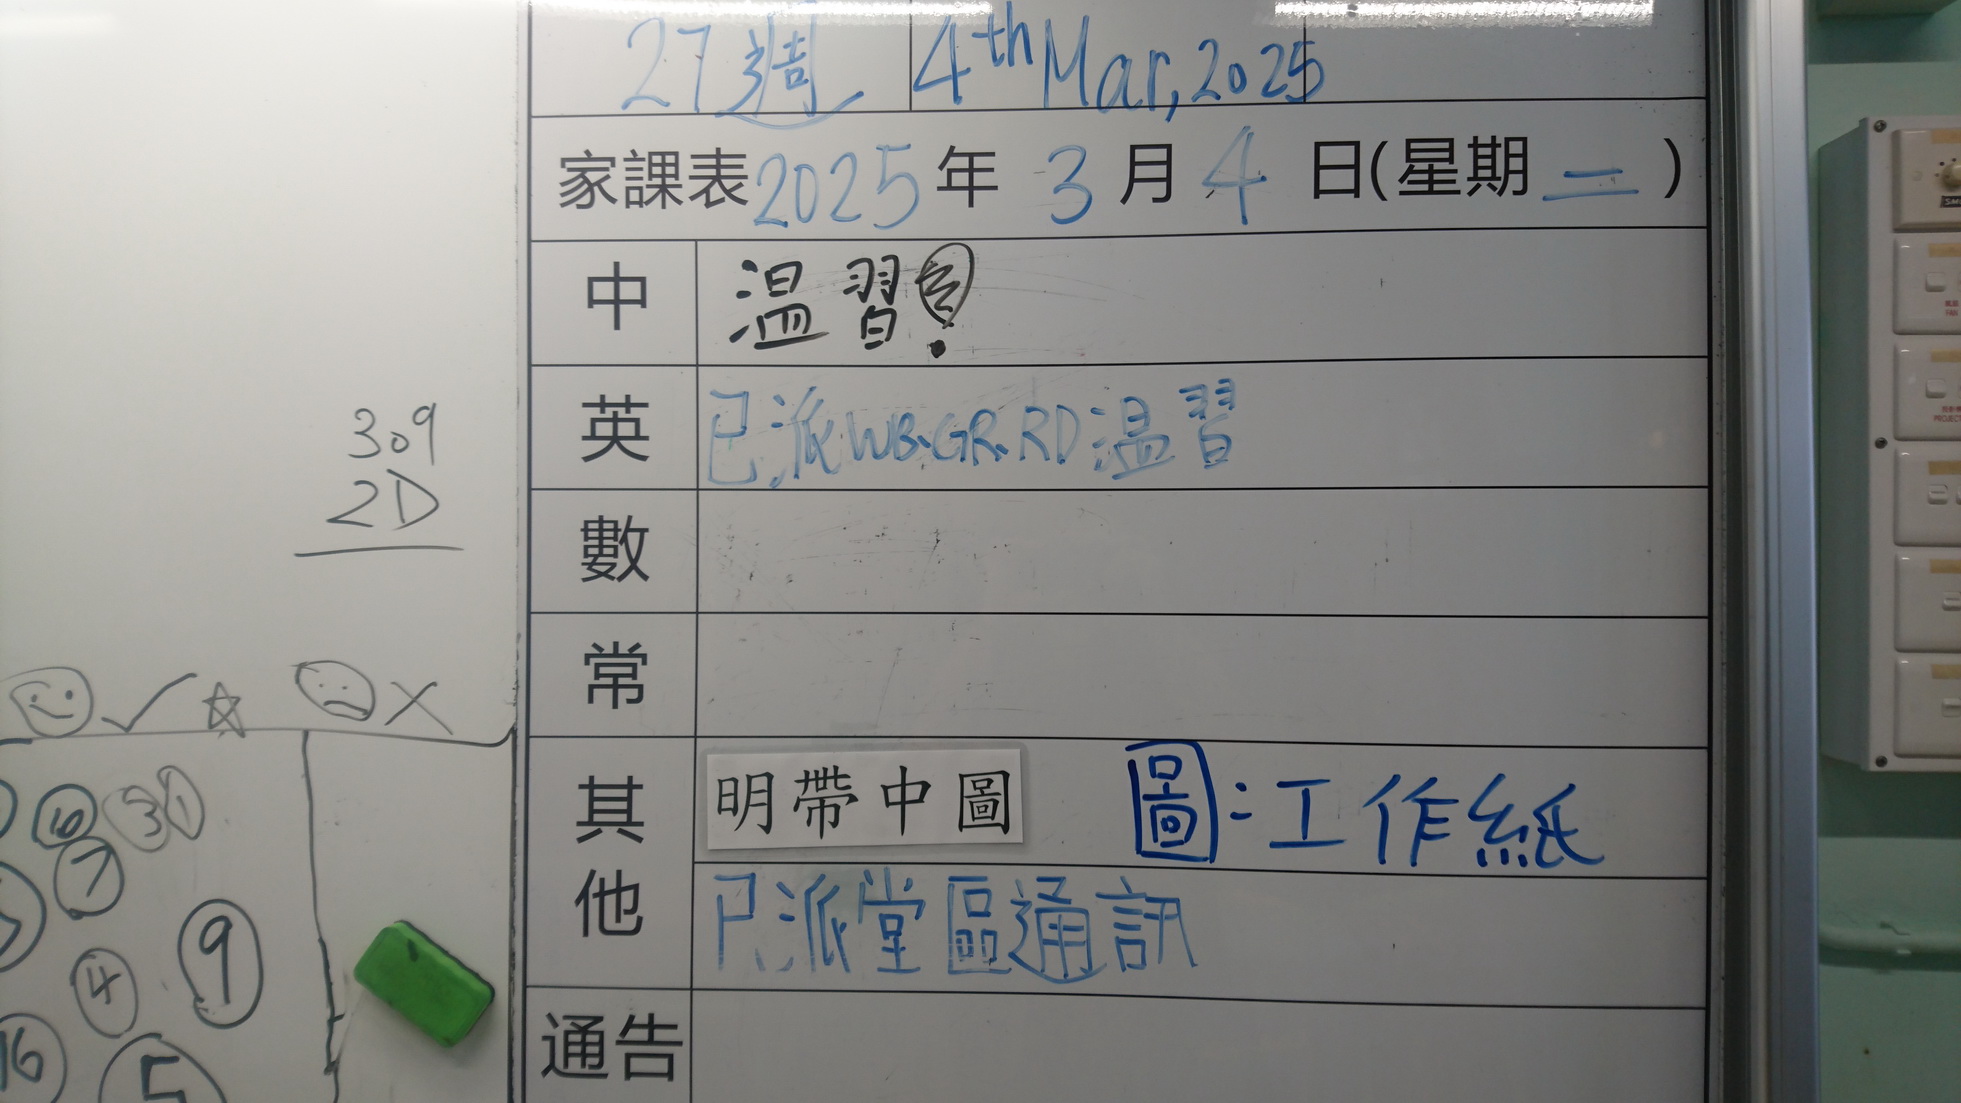 27週 4th Mar, 2025
家課表2025年3月4日(星期二)
中 溫習!
英 已派WB.GR.RD溫習
數
常
其他 明帶中圖 圖:工作紙
已派堂區通訊
通告
309
2D
10 31
7
9
4
16
5